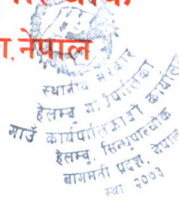 , नेपाल
स्थानीय सरकार
हेलम्बु गाउँपालिका
गाउँ कार्यपालिकाको कार्यालय
हेलम्बु, सिन्धुपाल्चोक
बागमती प्रदेश, नेपाल
स्था २०७३